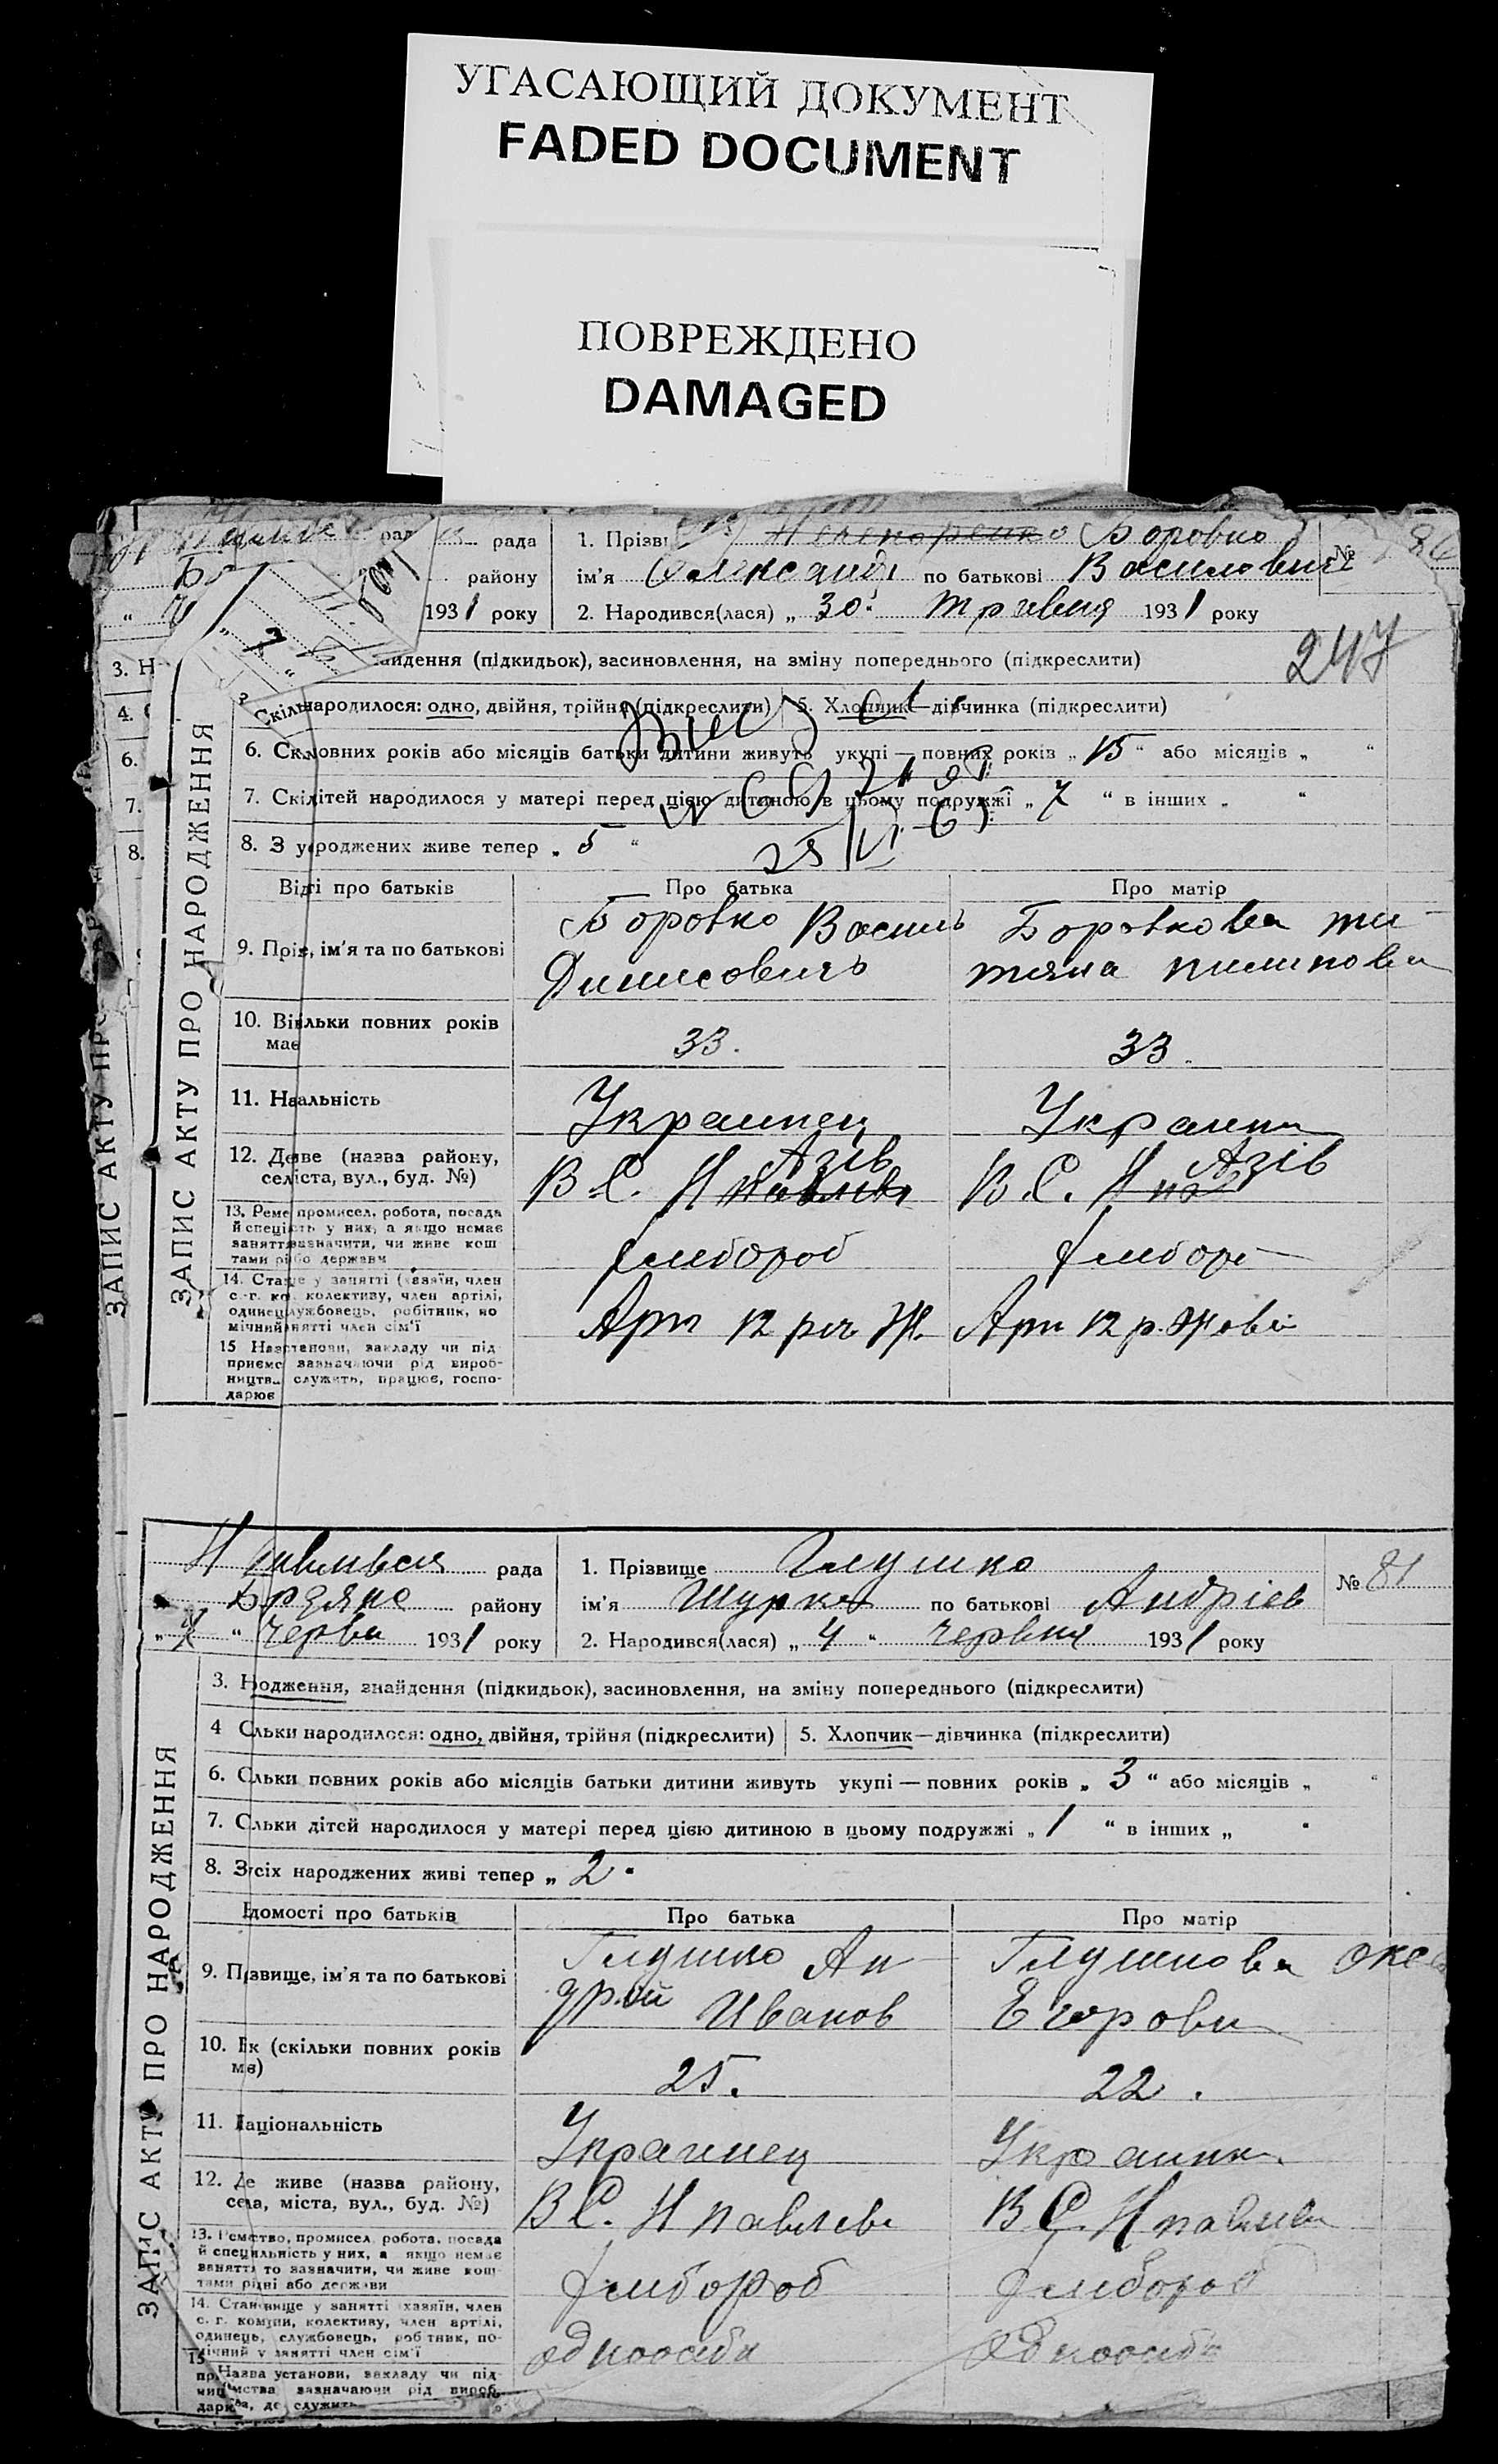 УГАСАЮЩИЙ ДОКУМЕНТ
FADED DOCUMENT
ПОВРЕЖДЕНО
DAMAGED
рада
району
1931 року
1. Прізви Боровко
ім'я Олександр по батькові Василович
2. Народився(лася) „ 30 " травня 1931 року
№ 86
247
3. Н айдення (підкидьок), засиновлення, на зміну попереднього (підкреслити)
4. Скільнародилося: одно, двійня, трійня (підкреслити) 5. Хлопчик—дівчинка (підкреслити)
6. Скловних років або місяців батьки дитини живуть укупі — повних років „ 15 " або місяців „ "
7. Скілітей народилося у матері перед цією дитиною в цьому подружжі „ 7 " в інших „ "
8. З уроджених живе тепер „ 5 "
Віді про батьків Про батька Про матір
9. Прів, ім'я та по батькові
Боровко Василь
Динисовичь
Боровкова та-
тяна пилипови
10. Вікільки повних років має 33. 33.
11. Наальність Украинец Украинк
12. Деиве (назва району, селіста, вул., буд. №)
В.С. Н Павлівк Азів
В.С. Н па Азів
13. Реме промисел, робота, посада й спеціість у них, а якщо немає заняттязазначити, чи живе коштами рібо держави
хлибороб хлиборо
14. Стаще у занятті (хазяїн, член с.-г. ко, колективу, член артілі, одинецлужбовець, робітник, помічниййнятті член сім'ї
Арт 12 річ Ж. Арт 12 р. Жовт
15 Назвтанови, закладу чи підприємс зазначаючи рід виробництв служить, працює, господарює
ЗАПИС АКТУ ПРО НАРОДЖЕННЯ
ЗАПИС АКТУ ПРО
Н Павлівска рада
району
„ 7 " Червн 1931 року
1. Прізвище Глушко
ім'я Шурка по батькові Андріев
2. Народився(лася) „ 4 " червня 1931 року
№ 81
3. Нодження, знайдення (підкидьок), засиновлення, на зміну попереднього (підкреслити)
4 Сльки народилося: одно, двійня, трійня (підкреслити) 5. Хлопчик—дівчинка (підкреслити)
6. Сльки повних років або місяців батьки дитини живуть укупі — повних років „ 3 " або місяців „ "
7. Сльки дітей народилося у матері перед цією дитиною в цьому подружжі „ 1 " в інших „ "
8. Зсіх народжених живі тепер „ 2 "
Ідомості про батьків Про батька Про матір
9. Пізвище, ім'я та по батькові
Глушко Ан-
дрий Иванов
Глушкова Окс
Егорови
10. Ек (скільки повних років мє) 25. 22.
11. Національність Украинец Украинк
12. Де живе (назва району, села, міста, вул., буд. №)
В С. Н павлівк В С. Н павлівк
13. Ремество, промисел, робота, посада й специльність у них, а якщо немає занятті то зазначити, чи живе коштами рідні або держави
хлибороб хлибороб
14. Становище у занятті хазяїн, член с. г. комуни, колективу, член артілі, одинець, службовець, робітник, помічний у занятті член сім'ї
одноосібн одноосібн
15 Назва установи, закладу чи підприємства зазначаючи рід вироб
де служить
ЗАПИС АКТУ ПРО НАРОДЖЕННЯ